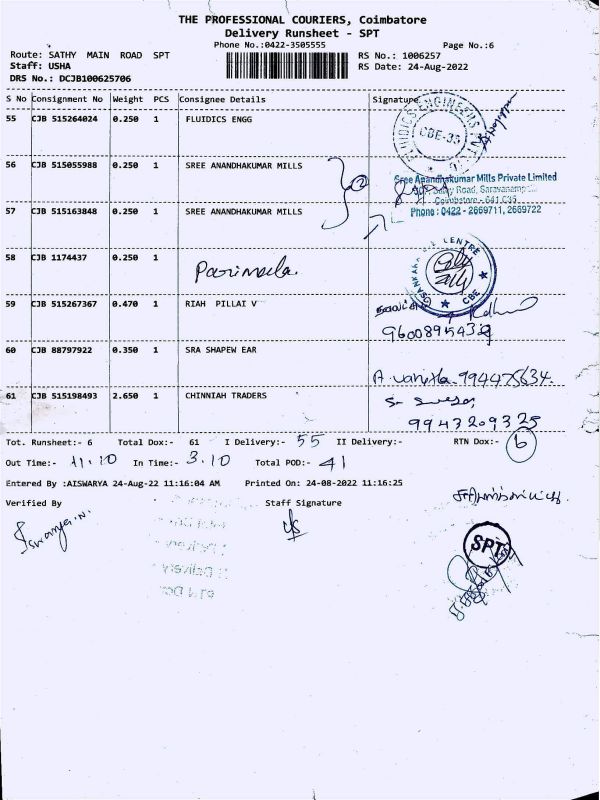 THE PROFESSIONAL COURIERS, Coimbatore
Delivery Runsheet - SPT
Phone No.:0422-3505555 Page No.:6
Route: SATHY MAIN ROAD SPT RS No.: 1006257
Staff: USHA RS Date: 24-Aug-2022
DRS No.: DCJB100625706
S No Consignment No Weight PCS Consignee Details Signature
55 CJB 515264024 0.250 1 FLUIDICS ENGG
FLUIDICS ENGINEERS
CBE-35
56 CJB 515055988 0.250 1 SREE ANANDHAKUMAR MILLS
Sree Anandhakumar Mills Private Limited
Road, Saravanampatti
Coimbatore - 641 035
Phone : 0422 - 2669711, 2669722
57 CJB 515163848 0.250 1 SREE ANANDHAKUMAR MILLS
2
58 CJB 1174437 0.250 1
Parimala.
SANKARA EYE CENTRE
CBE
59 CJB 515267367 0.470 1 RIAH PILLAI V
60 CJB 88797922 0.350 1 SRA SHAPEW EAR
A. Vanitha. 994475634.
61 CJB 515198493 2.650 1 CHINNIAH TRADERS
9943209325
Tot. Runsheet:- 6 Total Dox:- 61 I Delivery:- 55 II Delivery:- RTN Dox:- 6
Out Time:- 11.10 In Time:- 3.10 Total POD:- 41
Entered By :AISWARYA 24-Aug-22 11:16:04 AM Printed On: 24-08-2022 11:16:25
Verified By Staff Signature
SPT